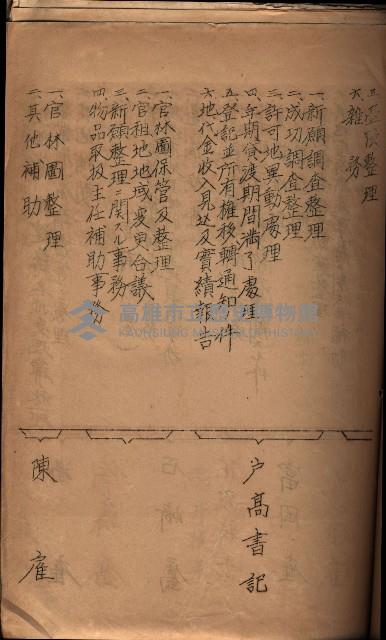 五、臺帳整理
六、雜務
一、新願調査整理
二、成功調査整理
三、許可地異動處理
四、年期貸渡期間滿了處理
五、登記並所有權移轉通知ノ件
六、地代金收入見込及實績報告
戶高書記
一、官林圖保管及整理
二、官租地地域變更合議
三、新願整理ニ関スル事務
四、物品取扱主任補助事務
一、官林圖整理
二、其他補助
陳雇
高雄市立歷史博物館
KAOHSIUNG MUSEUM OF HISTORY